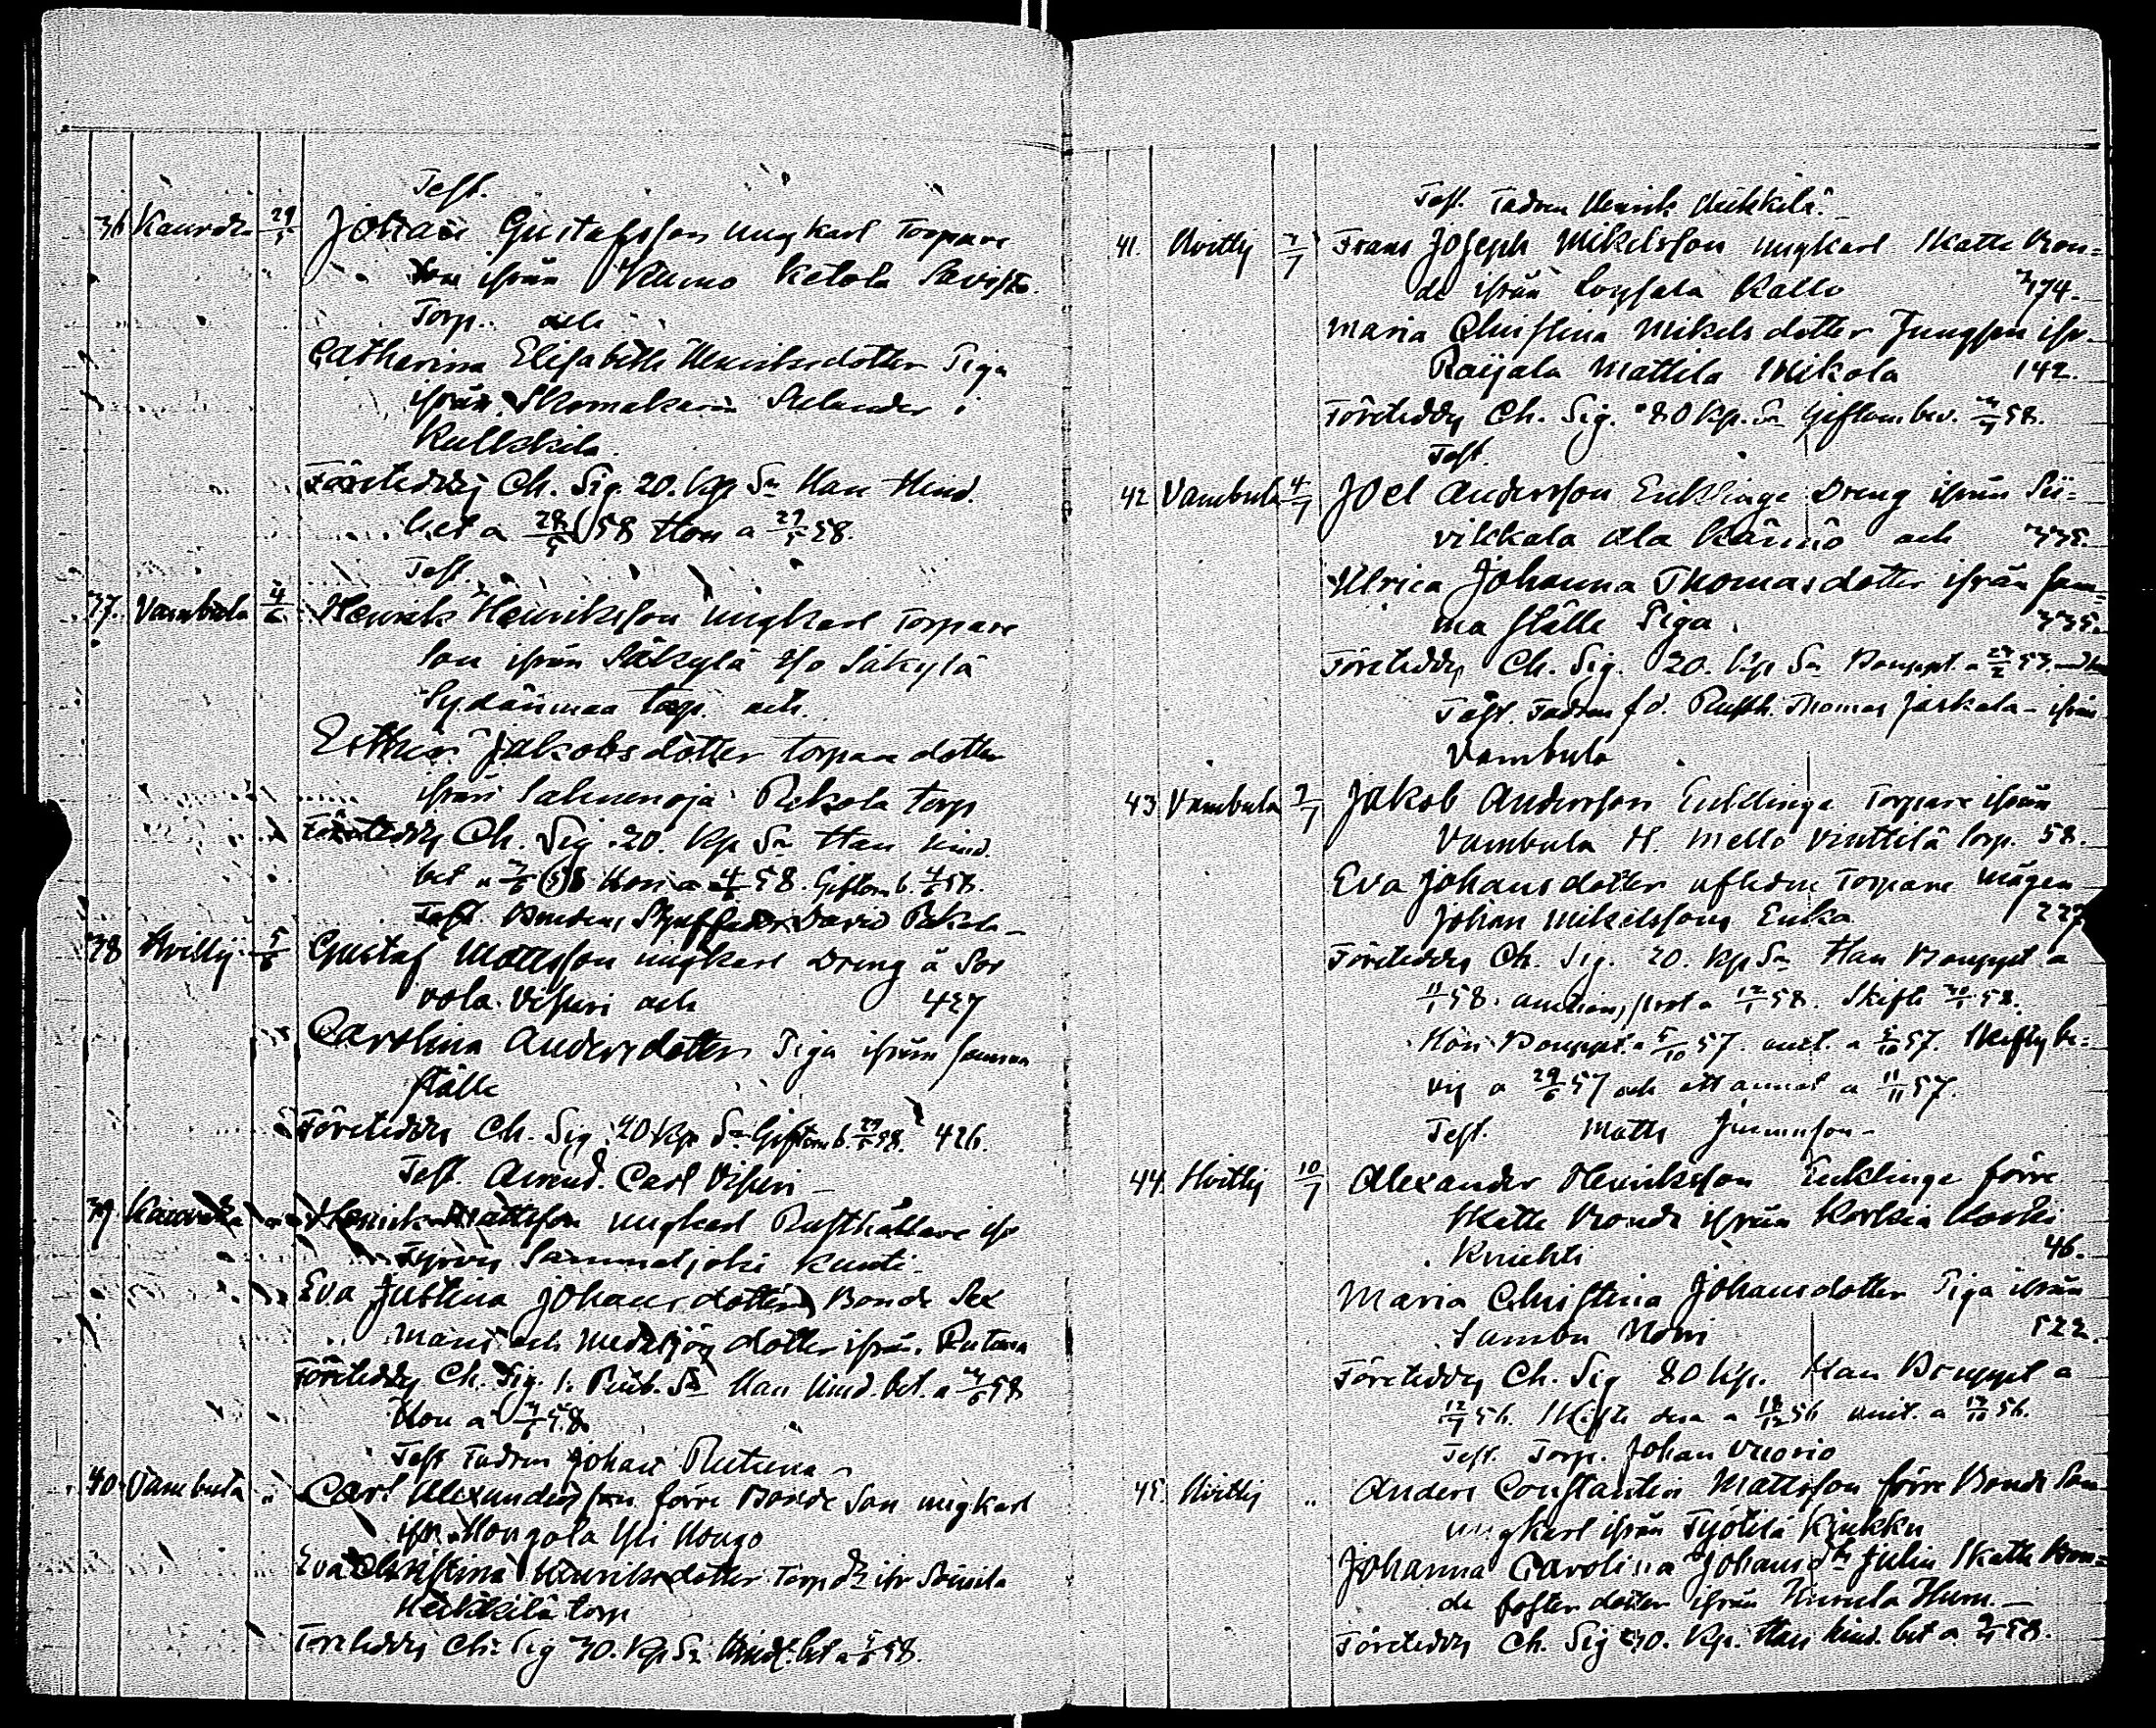 Test.
36 Kauvatsa 29/5 Johan Gustafsson ungkarl Torpare
son ifrån Kumo Ketola Savisto
Torp. och
Catharina Elisabeth Henriksdotter Piga
ifrån Skomakaren Selander i
Kulkkila
Företeddes Ch. Sig. 20. Kop Sr Han Hind.
bet a 28/5 58 Hon a 29/5 58.
Test.
37. Vambula 4/6 Henrik Henriksson ungkarl Torpare
son ifrån Säkylä Iso Säkylä
Sydänmaa torp. och
Esther Jakobsdotter torpare dotter
ifrån Salmenoja Rekola torp
Företeddes Ch. Sig. 20. Kop Sr Han hind.
bet a 3/6 58 Hon a 4/6 58. Giftom b. 4/6 58.
Test. Bondens David Rekola
38 Hvittis 5/6 Gustaf Mattsson ungkarl Dreng å Sor
vola Vispuri och 427
Carolina Andersdotter Piga ifrån samma
ställe
Företeddes Ch. Sig. 40 Kop Sr Giftom b. 29/5 58. 426.
Test. Arrend. Carl Vispuri
39 Kauvatsa " Henrik Mattsson ungkarl Rusthållare ifr
Tyrvis Sammaljoki Kunti
Eva Justina Johansdotter Bonde Sex
mans och dotter ifrån Rutava
Företeddes Ch. Sig. 1. Rub. Sr Han hind. bet. a 58
Hon a 58
Test Fadren Johan Rutava
40. Vambula " Carl Alexandersson förre Bonde Son ungkarl
ifr. Hongola Yli Hongo
Eva Christina Henriksdotter Torp dr ifr
Heikkilä torp
Företeddes Ch. Sig 30. Kop Sr Hind. bet a 58.
Test. Fadren Henrik Heikkilä.
41. Hvittis 3/7 Frans Joseph Mikelsson ungkarl Skatte Bon=
de ifrån Loysala Kallo 374.
Maria Christina Mikels dotter Jungfru ifr
Raijala Mattila Mikola 142.
Företeddes Ch. Sig. 80 Kop. Sr Giftom bev. 58.
Test.
42 Vambula 4/7 Joel Andersson Enklinge Dreng ifrån Sii=
vikkala Ala Kännö och 335.
Ulrica Johanna Thomasdotter ifrån sam=
ma ställe Piga 335.
Företeddes Ch. Sig. 20. Kop Sr Bouppt. a
Test. Fadren f d. Rusth. Thomas Jaskala ifrån
Vambula
43 Vambula 7/7 Jakob Andersson Enklinge Torpare ifrån
Vambula H. Mello Vinttilä torp. 58.
Eva Johansdotter aflidne Torpare mågen
Johan Mikelssons Enka 227
Företeddes Ch. Sig. 20. Kop Sr Han Bouppt a
58. auctions prot a 58. Skifte 58.
Hon Bouppt. a 5/10 57. auct. a 57. Skiftes be=
vis a 29/6 57 och ett annat a 11/11 57.
Test. Matts
44. Hvittis 10/7 Alexander Henriksson Enklinge förre
Skatte Bonde ifrån Korkia Koski
Knichti 46.
Maria Christina Johansdotter Piga ifrån
Sambu Nowi 522.
Företeddes Ch. Sig 80 Kop. Han Bouppt a
56. Skifte dera a 56 auct. a 56.
Test. Torp. Johan Vuorio
45. Hvittis " Anders Constantin Mattsson förre Bonde Son
ungkarl ifrån Työtilä Kiukku
Johanna Carolina Johansdtr Julin Skatte Bon=
de foster dotter ifrån
Företeddes Ch. Sig 30. Kop. Han hind. bet a 58.